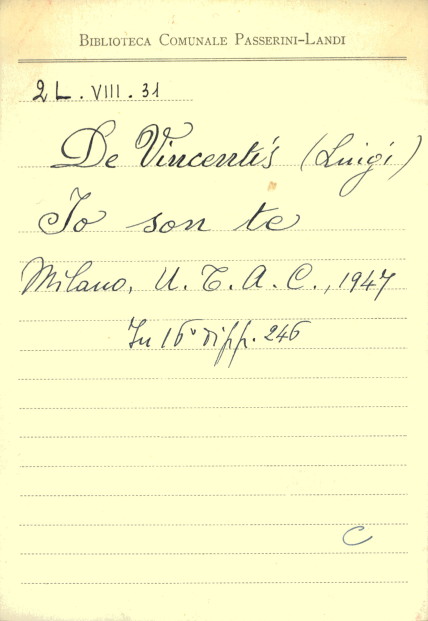 BIBLIOTECA COMUNALE PASSERINI-LANDI
2L. VIII. 31
De Vincentis (Luigi)
Io son te
Milano, U. T. A. C., 1947
In 16° di pp. 246
C